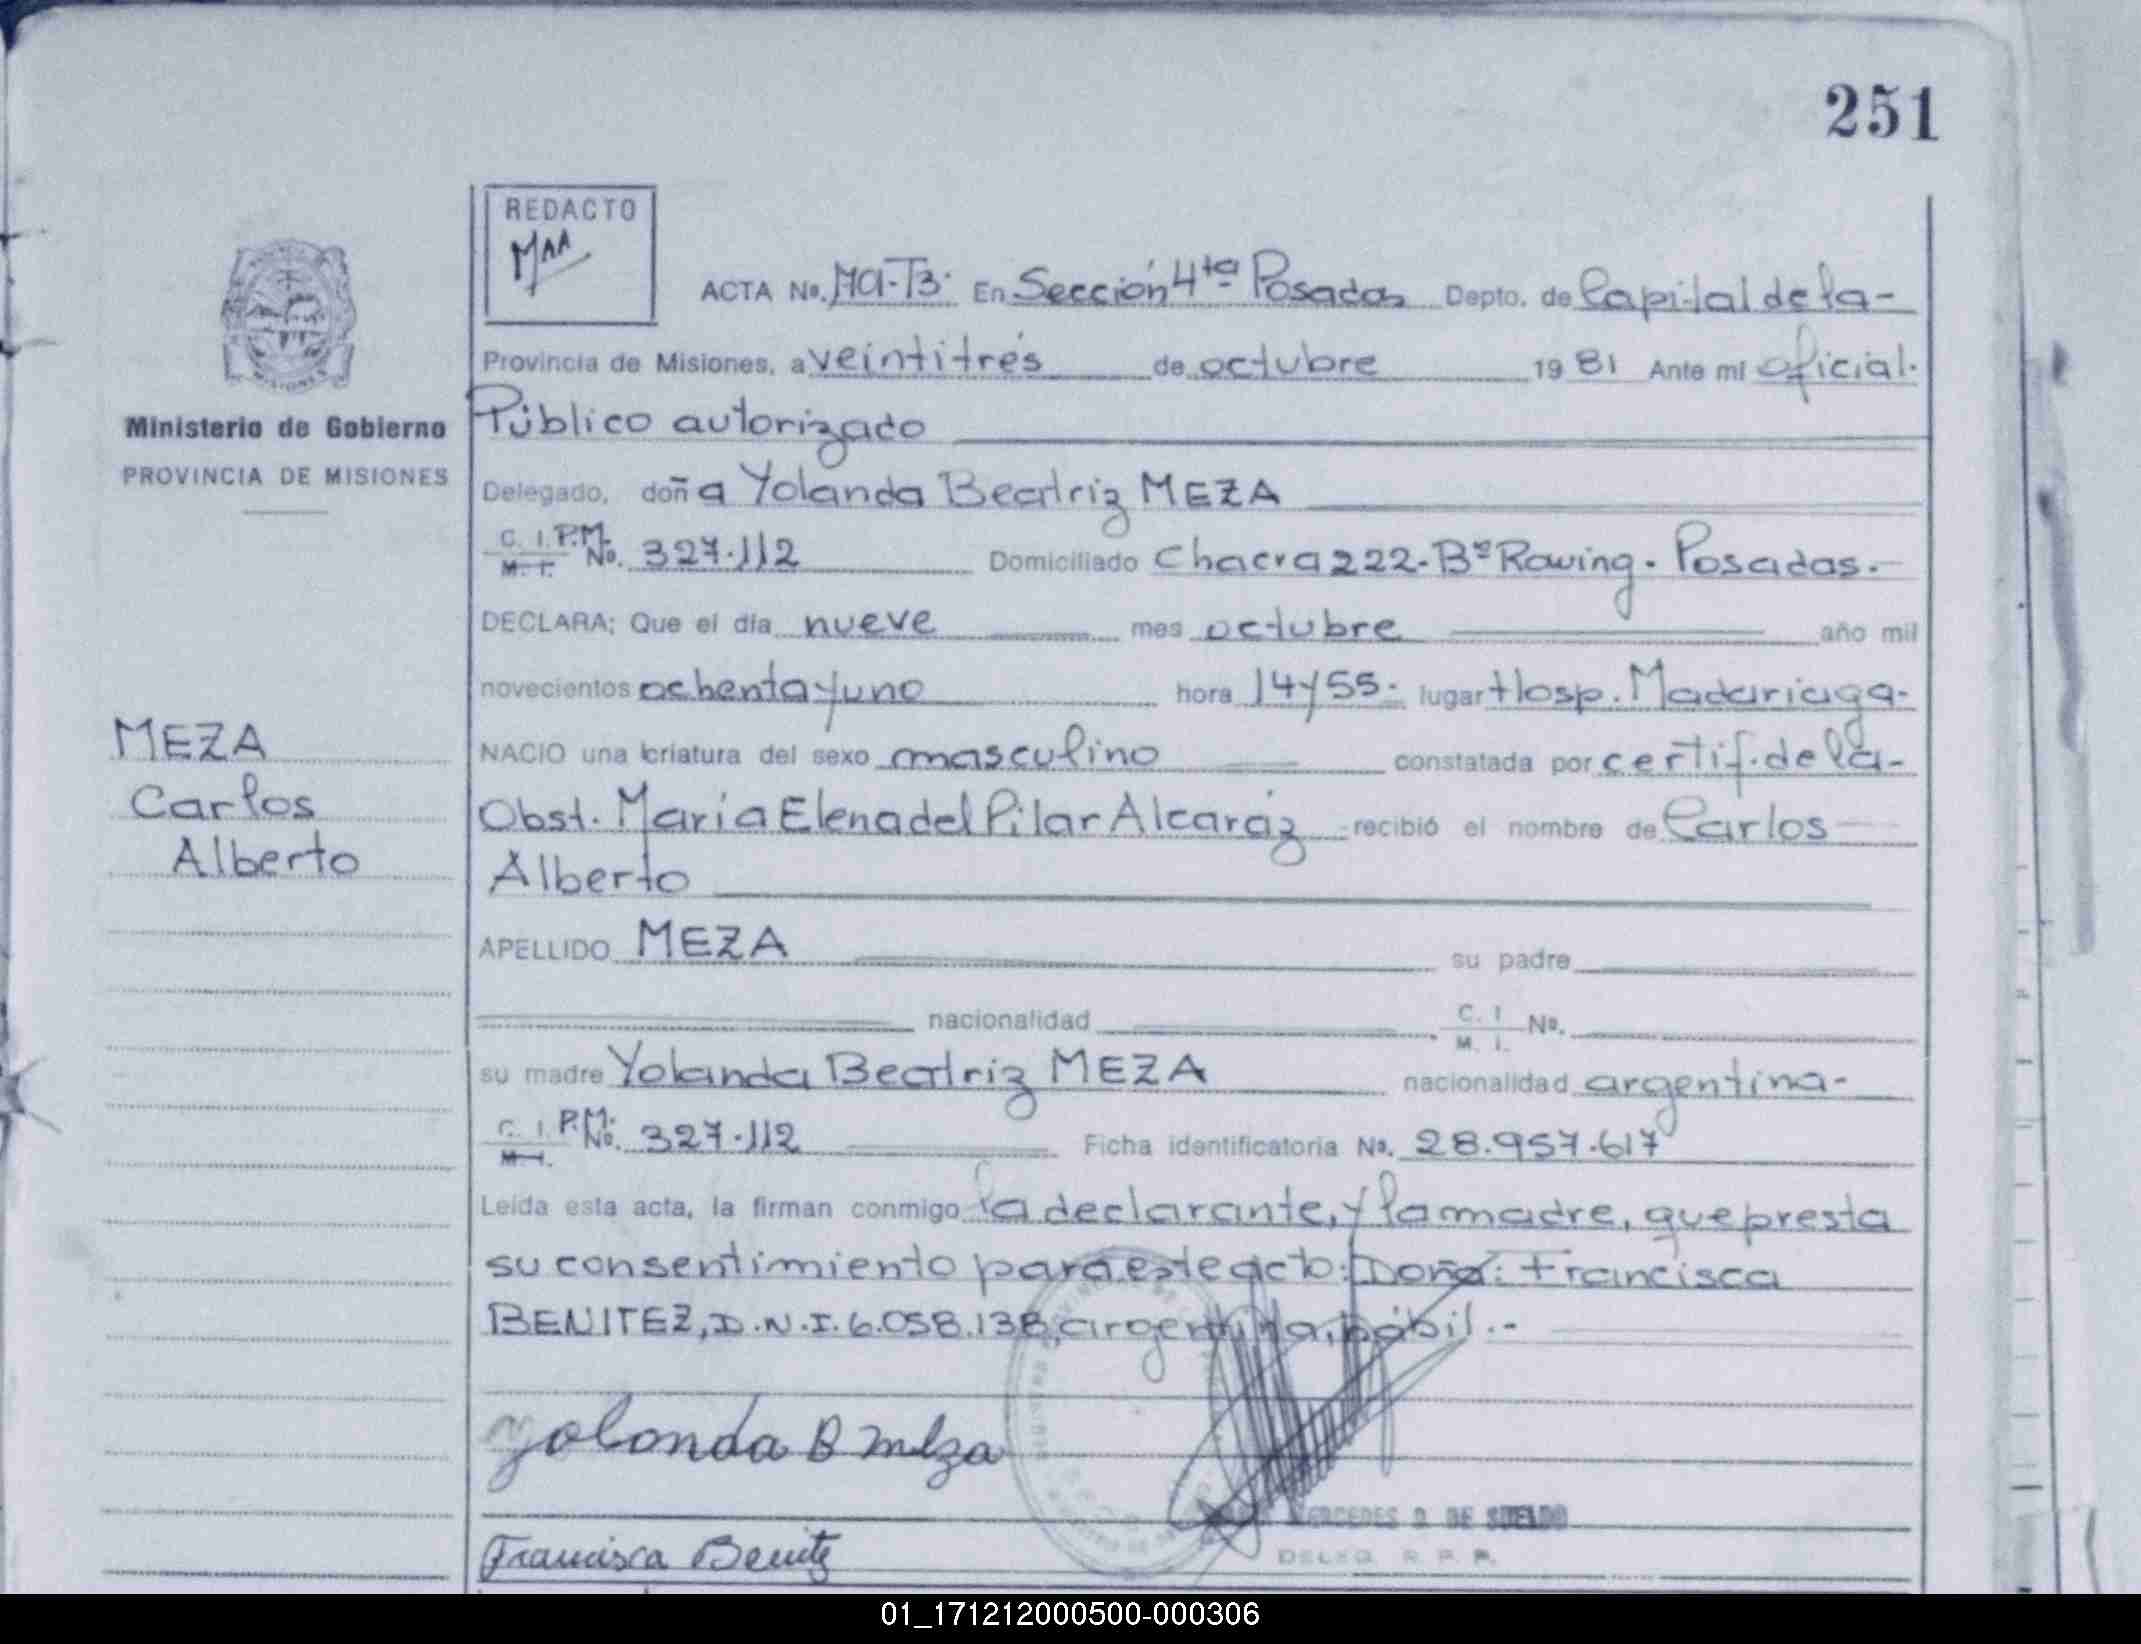 251
REDACTO
MAA
ACTA No. En Sección 4ta Posadas Depto. de Capital de la-
Provincia de Misiones, a veintitrés de octubre 1981 Ante mi oficial.
Público autorizado
Ministerio de Gobierno
PROVINCIA DE MISIONES
Delegado, doña Yolanda Beatriz MEZA
C. I. P.M. No. 327.112 Domiciliado Chacra 222-Bº Rowing. Posadas.-
M. I.
DECLARA; Que el día nueve mes octubre año mil
novecientos ochenta y uno hora 14 y 55- lugar Hosp. Madariaga-
MEZA
Carlos
Alberto
NACIO una criatura del sexo masculino constatada por certif. de la-
Obst. María Elena del Pilar Alcaráz recibió el nombre de Carlos
Alberto
APELLIDO MEZA su padre
nacionalidad C. I No.
M. I.
su madre Yolanda Beatriz MEZA nacionalidad argentina-
C. I. P.M. No. 327.112 Ficha identificatoria No. 28.957.617
M. I.
Leída esta acta, la firman conmigo la declarante, y la madre, que presta
su consentimiento para este acto: Doña: Francisca
BENITEZ, D.N.I. 6.058.138, argentina, hábil.-
Yolanda B Meza
MERCEDES D. DE SUELDO
DELEG. R. P. P.
Francisca Benitz
01_171212000500-000306